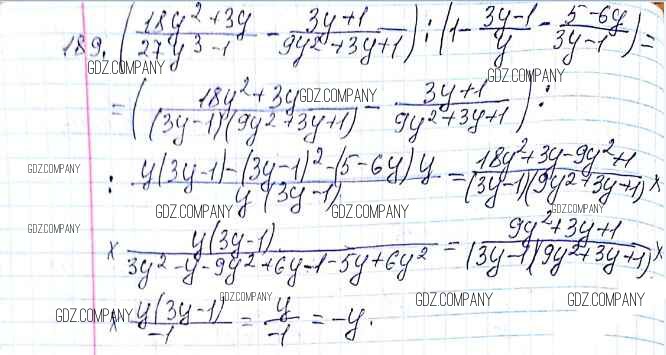 189. ( (18y²+3y)/(27y³-1) - (3y+1)/(9y²+3y+1) ) : ( 1 - (3y-1)/y - (5-6y)/(3y-1) ) =
GDZ.COMPANY GDZ.COMPANY
= ( (18y²+3y)/((3y-1)(9y²+3y+1)) - (3y+1)/(9y²+3y+1) ) :
GDZ.COMPANY
: (y(3y-1)-(3y-1)²-(5-6y)y)/(y(3y-1)) = (18y²+3y-9y²+1)/((3y-1)(9y²+3y+1)) ×
GDZ.COMPANY
GDZ.COMPANY GDZ.COMPANY GDZ.COMPANY GDZ.COMPANY
× (y(3y-1))/(3y²-y-9y²+6y-1-5y+6y²) = (9y²+3y+1)/((3y-1)(9y²+3y+1)) ×
GDZ.COMPANY
× (y(3y-1))/(-1) = y/(-1) = -y.
GDZ.COMPANY GDZ.COMPANY GDZ.COMPANY GDZ.COMPANY